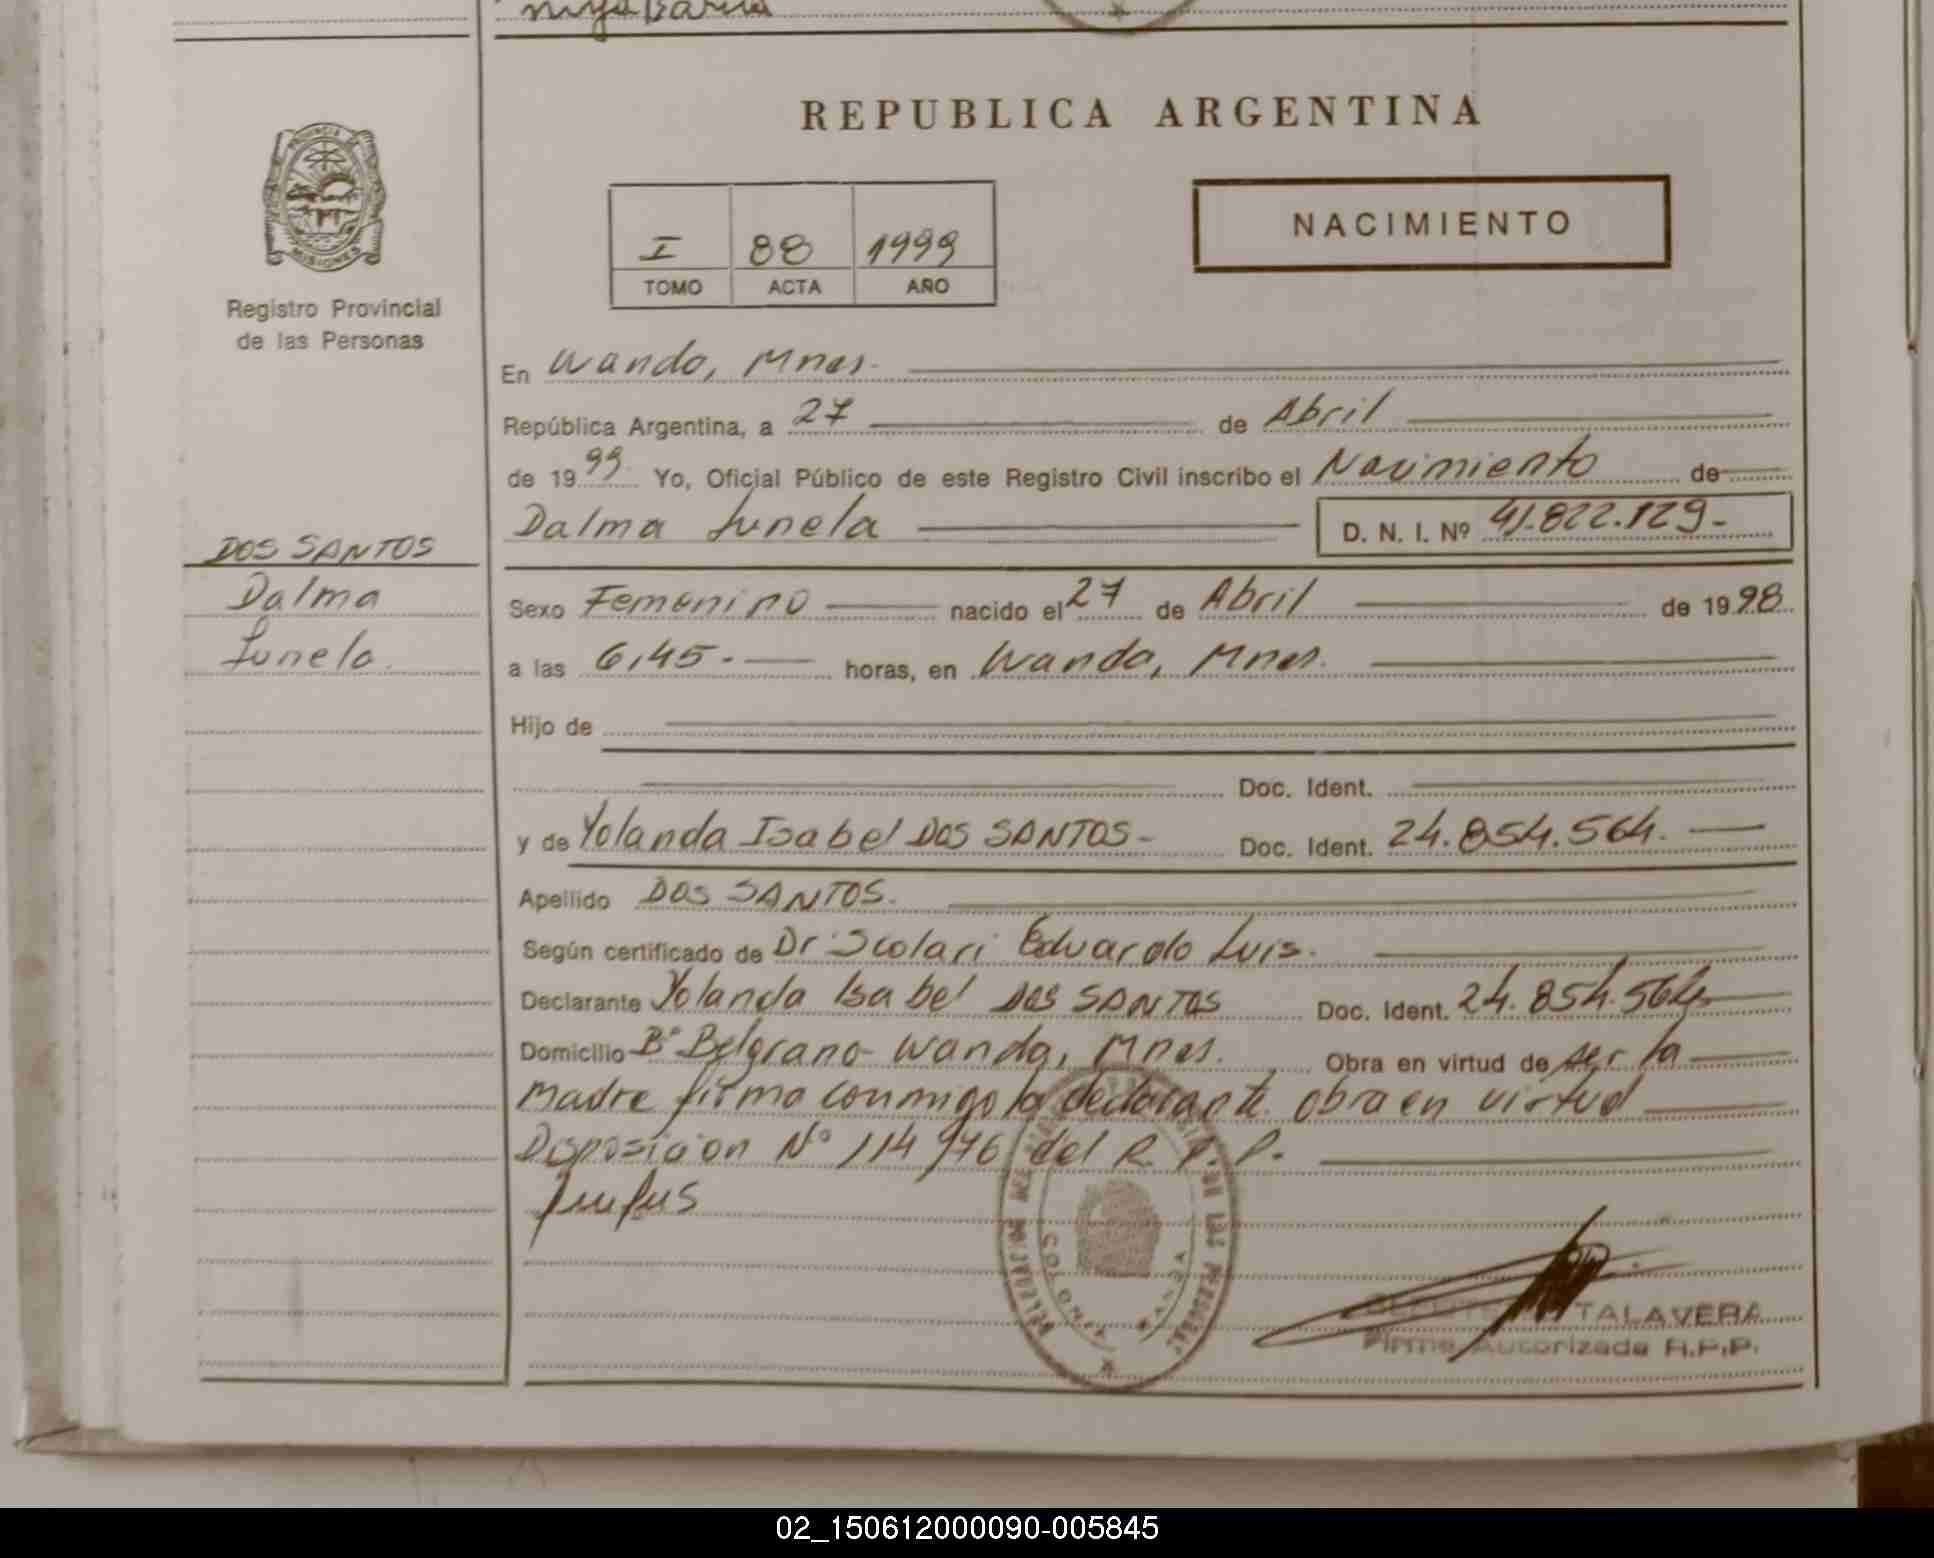 REPUBLICA ARGENTINA
PROVINCIA DE
MISIONES
Registro Provincial
de las Personas
NACIMIENTO
I 88 1999
TOMO ACTA AÑO
En Wanda, Mnes.
República Argentina, a 27 de Abril
de 1999. Yo, Oficial Público de este Registro Civil inscribo el Nacimiento de
Dalma Junela D. N. I. Nº 41.822.129.-
DOS SANTOS
Dalma
Junela.
Sexo Femenino nacido el 27 de Abril de 1998.
a las 6,45.- horas, en Wanda, Mnes.
Hijo de
Doc. Ident.
y de Yolanda Isabel DOS SANTOS- Doc. Ident. 24.854.564.
Apellido DOS SANTOS.
Según certificado de Dr Scolari Eduardo Luis.
Declarante Yolanda Isabel DOS SANTOS Doc. Ident. 24.854.564
Domicilio Bº Belgrano- Wanda, Mnes. Obra en virtud de ser la
madre firma conmigo la declarante obra en virtud
Disposicion Nº 114/76 del R. P. P.
TALAVERA
Firma Autorizada R.P.P.
02_150612000090-005845